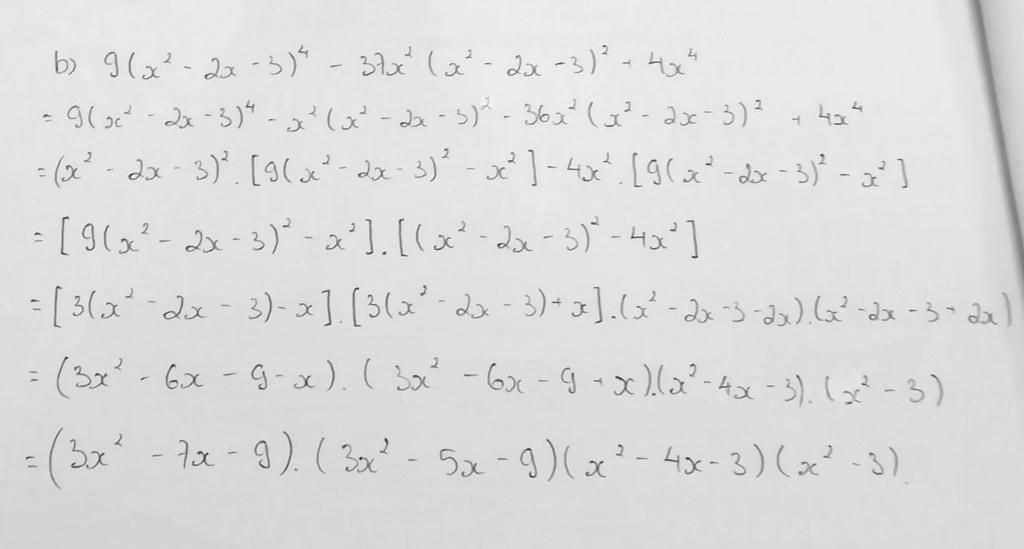 b) 9(x² - 2x - 3)⁴ - 37x² (x² - 2x - 3)² + 4x⁴
= 9(x² - 2x - 3)⁴ - x² (x² - 2x - 3)² - 36x² (x² - 2x - 3)² + 4x⁴
= (x² - 2x - 3)². [9(x² - 2x - 3)² - x²] - 4x². [9(x² - 2x - 3)² - x²]
= [9(x² - 2x - 3)² - x²]. [(x² - 2x - 3)² - 4x²]
= [3(x² - 2x - 3) - x]. [3(x² - 2x - 3) + x]. (x² - 2x - 3 - 2x). (x² - 2x - 3 + 2x)
= (3x² - 6x - 9 - x). (3x² - 6x - 9 + x).(x² - 4x - 3). (x² - 3)
= (3x² - 7x - 9). (3x² - 5x - 9)(x² - 4x - 3)(x² - 3).